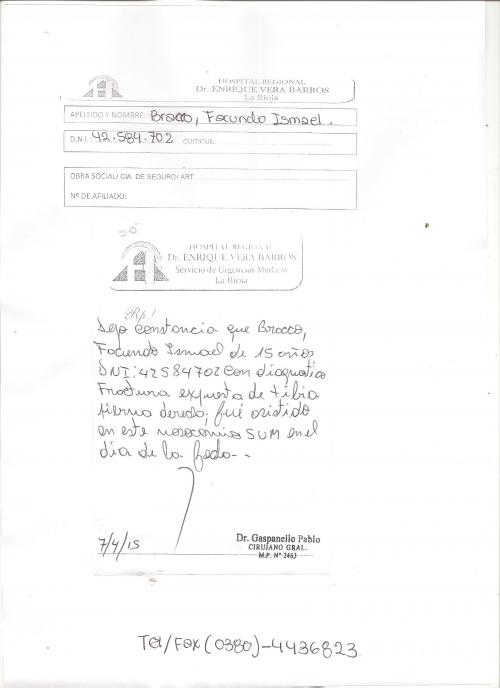 HOSPITAL REGIONAL
Dr. ENRIQUE VERA BARROS
La Rioja
APELLIDO Y NOMBRE: Brocco, Facundo Ismael.
D.N.I.: 42.584.702 CUIT/CUIL:
OBRA SOCIAL/ CIA. DE SEGURO/ ART
Nº DE AFILIADO:
HOSPITAL REGIONAL
Dr. ENRIQUE VERA BARROS
Servicio de Urgencias Medicas
La Rioja
Rp/
Dejo constancia que Brocco,
Facundo Ismael de 15 años
DNI: 42584702 con diagnostico
Fractura expuesta de tibia
pierna derecha, fué asistido
en este nosocomio SUM en el
día de la fecha--
7/4/15
Dr. Gaspanello Pablo
CIRUJANO GRAL.
M.P. Nº 2463
Tel/Fax (0380)-4436823